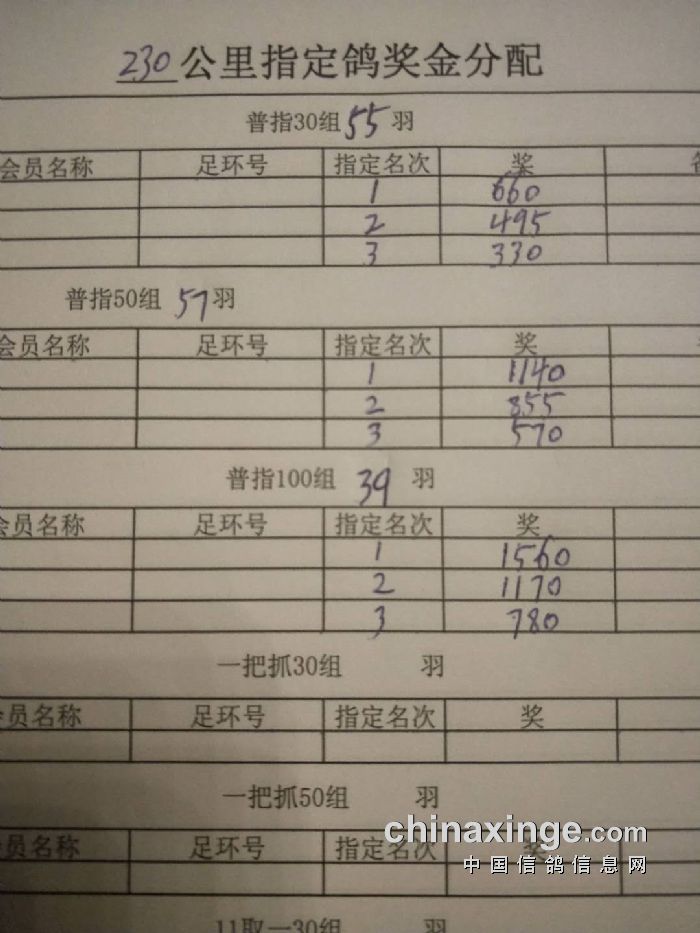 230 公里指定鸽奖金分配
普指30组 55 羽
会员名称 足环号 指定名次 奖
1 660
2 495
3 330
普指50组 57 羽
会员名称 足环号 指定名次 奖
1 1140
2 855
3 570
普指100组 39 羽
会员名称 足环号 指定名次 奖
1 1560
2 1170
3 780
一把抓30组 羽
会员名称 足环号 指定名次 奖
一把抓50组 羽
会员名称 足环号 指定名次 奖
chinaxinge.com
中国信鸽信息网
11取一30组 羽